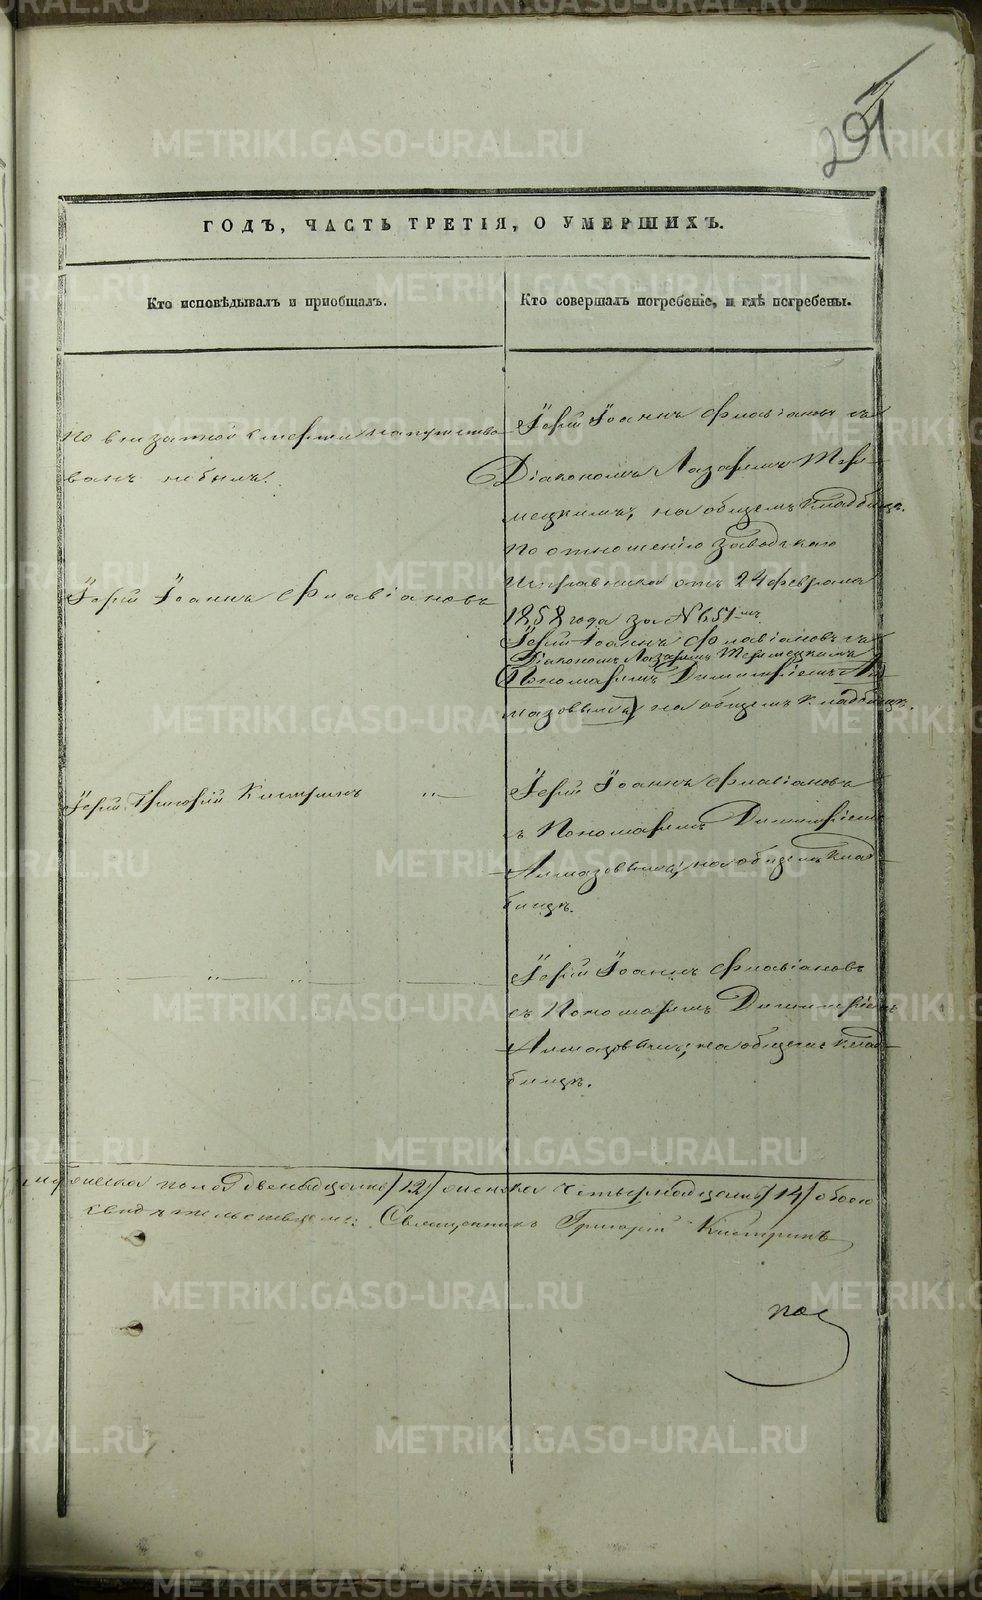 291
ГОДЪ, ЧАСТЬ ТРЕТІЯ, О УМЕРШИХЪ.
Кто исповѣдывалъ и пріобщалъ.
Кто совершалъ погребеніе, и гдѣ погребены.
по внезапной смерти напутство
ванъ не былъ.
Іерей Іоаннъ Флавіановъ съ
Діакономъ Лазаремъ
на общемъ кладбищѣ.
по отношенію Заводскаго
Исправника отъ 24 февраля
1858 года за № 651
Іерей Іоаннъ Флавіановъ
Іерей Іоаннъ Флавіановъ съ
Діакономъ Лазаремъ
Пономаремъ Димитріемъ Ал
мазовымъ на общемъ кладбищѣ.
Іерей Григорій Кистринъ
Іерей Іоаннъ Флавіановъ
съ Пономаремъ Димитріемъ
Алмазовымъ, на общемъ клад
бищѣ.
Іерей Іоаннъ Флавіановъ
съ Пономаремъ Димитріемъ
Алмазовымъ, на общемъ клад
бищѣ.
мужеска пола двенадцать /12/ женска четырнадцать /14/ обоего
свидѣтельствуемъ: Священникъ Григорій Кистринъ
по
METRIKI.GASO-URAL.RU